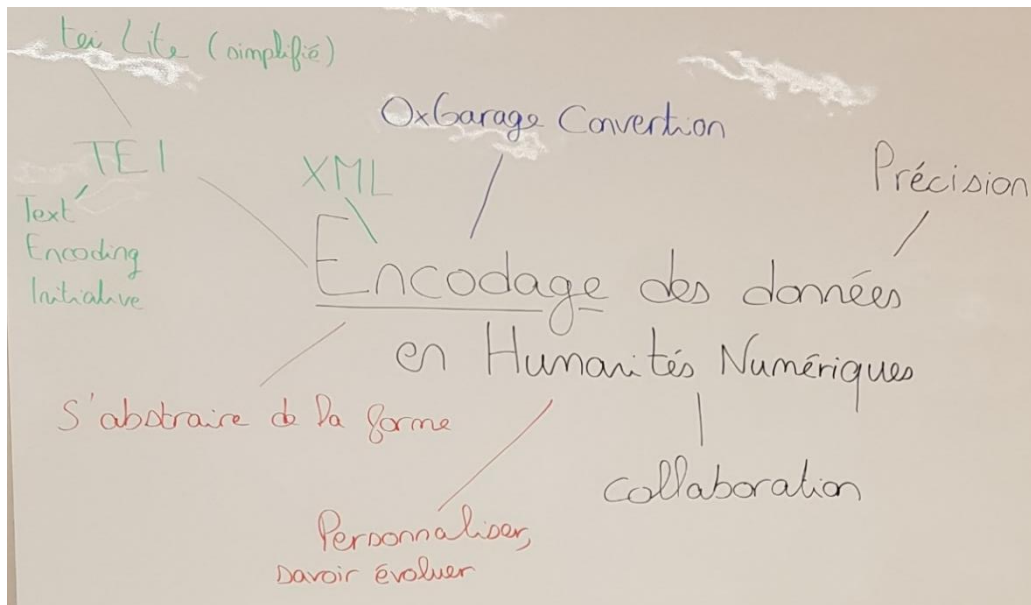 tei Lite (simplifié)
OxGarage Convertion
TEI
XML
Précision
Text
Encoding
Initiative
Encodage des données
en Humanités Numériques
S'abstraire de la forme
collaboration
Personnaliser,
savoir évoluer